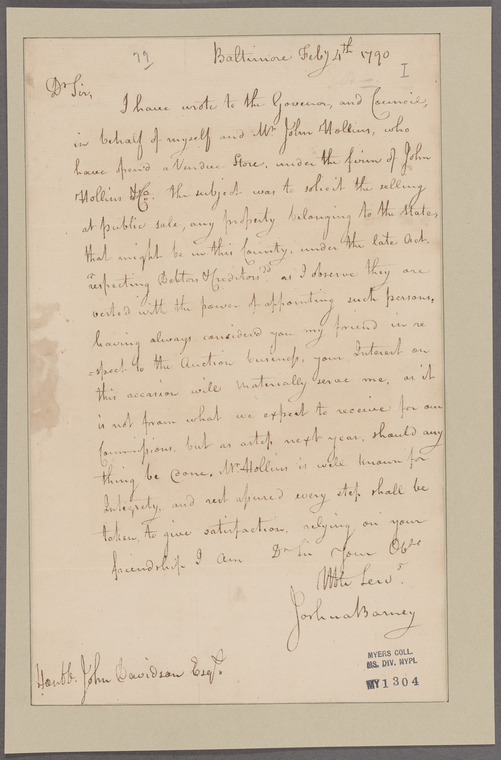 77
Baltimore Feby 4th 1790
I
Dr Sir,
I have wrote to the Govenor, and Council,
in behalf of myself and Mr John Hollins, who
have open'd a Vendue Store, under the firm of John
Hollins & Co. the subject was to solicit the selling
at public sale, any property belonging to the State,
that might be in this County, under the late Act.
respecting Debtors & Creditors as I observe they are
vested with the power of appointing such persons,
having always considerd you my friend in re
-spect to the Auction business, your Interest on
this occasion will materially serve me, as it
is not from what we expect to receive for our
Commissions, but as a step next year, should any
thing be done. Mr Hollins is well known for
Integrety, and rest assured every step shall be
taken, to give satisfaction. relying on your
friendship I am Dr Sir Your Obt
Hble Servt.
Joshua Barney
Honbl. John Davidson Esqr.
MYERS COLL.
MS. DIV. NYPL
MY 1304